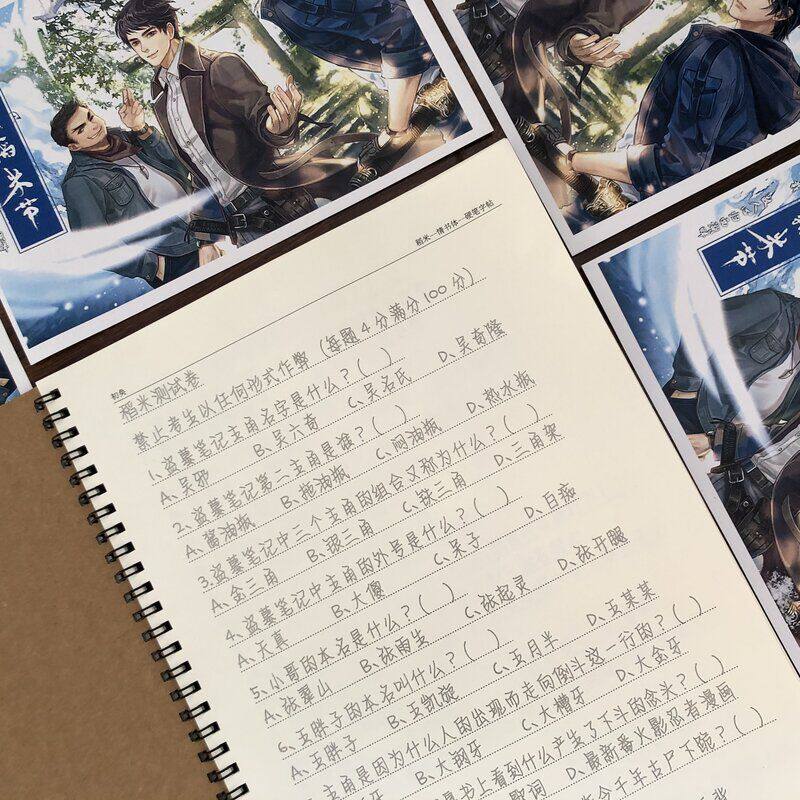 稻米节
米节
稻米—情书体—硬笔字帖
初奂
稻米测试卷
禁止考生以任何形式作弊（每题4分满分100分）
1、盗墓笔记主角名字是什么？( )
A、吴邪 B、吴六奇 C、吴名氏 D、吴奇隆
2、盗墓笔记第二主角是谁？( )
A、酱油瓶 B、拖油瓶 C、闷油瓶 D、热水瓶
3、盗墓笔记中三个主角的组合又称为什么？( )
A、金三角 B、银三角 C、铁三角 D、三角架
4、盗墓笔记中主角的外号是什么？( )
A、天真 B、大傻 C、呆子 D、白痴
5、小哥的本名是什么？( )
A、张翠山 B、张雨生 C、张起灵 D、张开腿
6、王胖子的本名叫什么？( )
A、王胖子 B、王凯旋 C、王月半 D、王某某
主角是因为什么人的出现而走向倒斗这一行的？( )
牙 B、大钢牙 C、大槽牙 D、大金牙
书上看到什么产生了下斗的念头？( )
歌词 D、最新番火影忍者漫画
今千年古尸下跪？( )